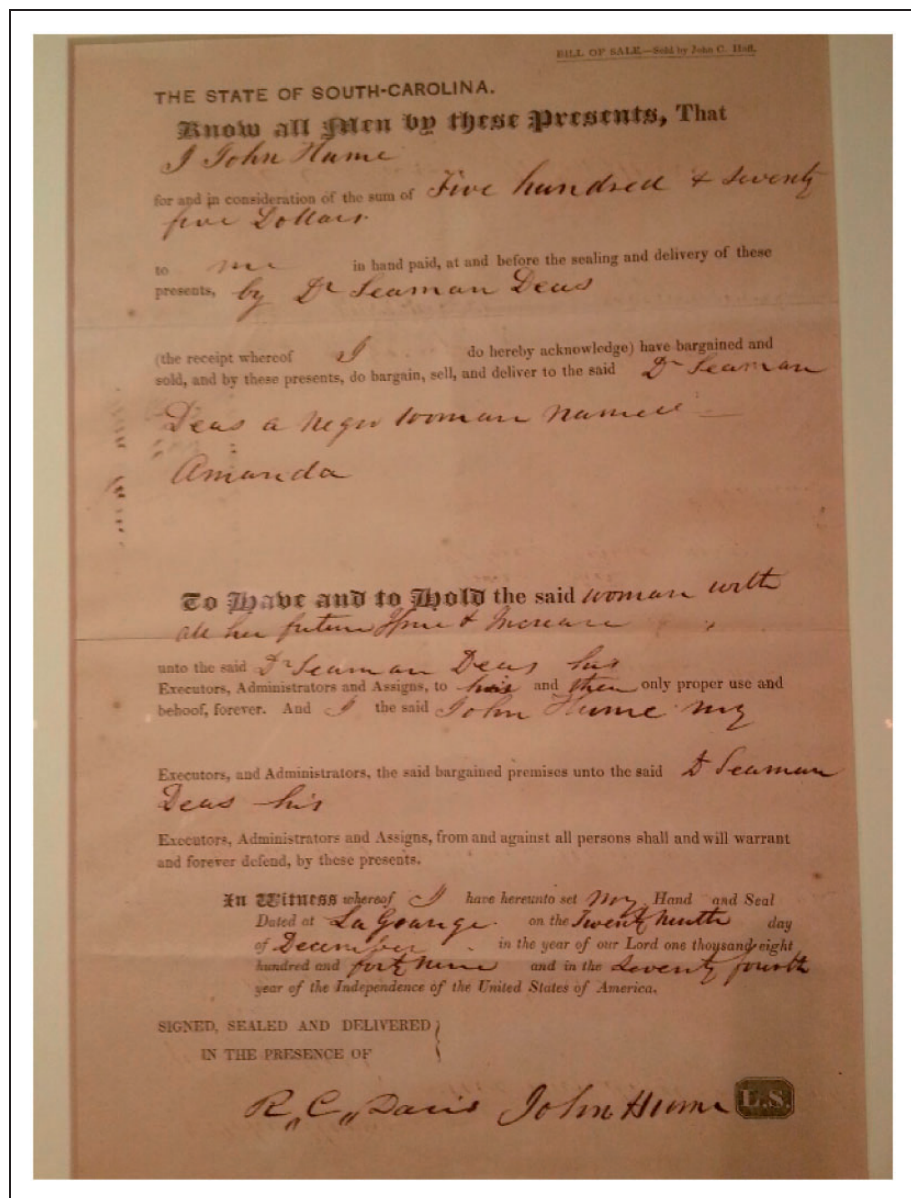 BILL OF SALE.—Sold by John C. Hoff.
THE STATE OF SOUTH-CAROLINA.
Know all Men by these Presents, That
I John Hume
for and in consideration of the sum of Five hundred & Seventy
five Dollars
to me in hand paid, at and before the sealing and delivery of these
presents, by Dr Seaman Deas
(the receipt whereof I do hereby acknowledge) have bargained and
sold, and by these presents, do bargain, sell, and deliver to the said Dr Seaman
Deas a negro woman named
Amanda
To Have and to Hold the said woman with
all her future & Increase
unto the said Dr Seaman Deas his
Executors, Administrators and Assigns, to his and only proper use and
behoof, forever. And I the said John Hume my
Executors, and Administrators, the said bargained premises unto the said Dr Seaman
Deas his
Executors, Administrators and Assigns, from and against all persons shall and will warrant
and forever defend, by these presents.
In Witness whereof I have hereunto set My Hand and Seal
Dated at La Grange on the Twenty Ninth day
of December in the year of our Lord one thousand eight
hundred and forty nine and in the Seventy fourth
year of the Independence of the United States of America.
SIGNED, SEALED AND DELIVERED
IN THE PRESENCE OF
R,, C,, Davis John Hume L.S.